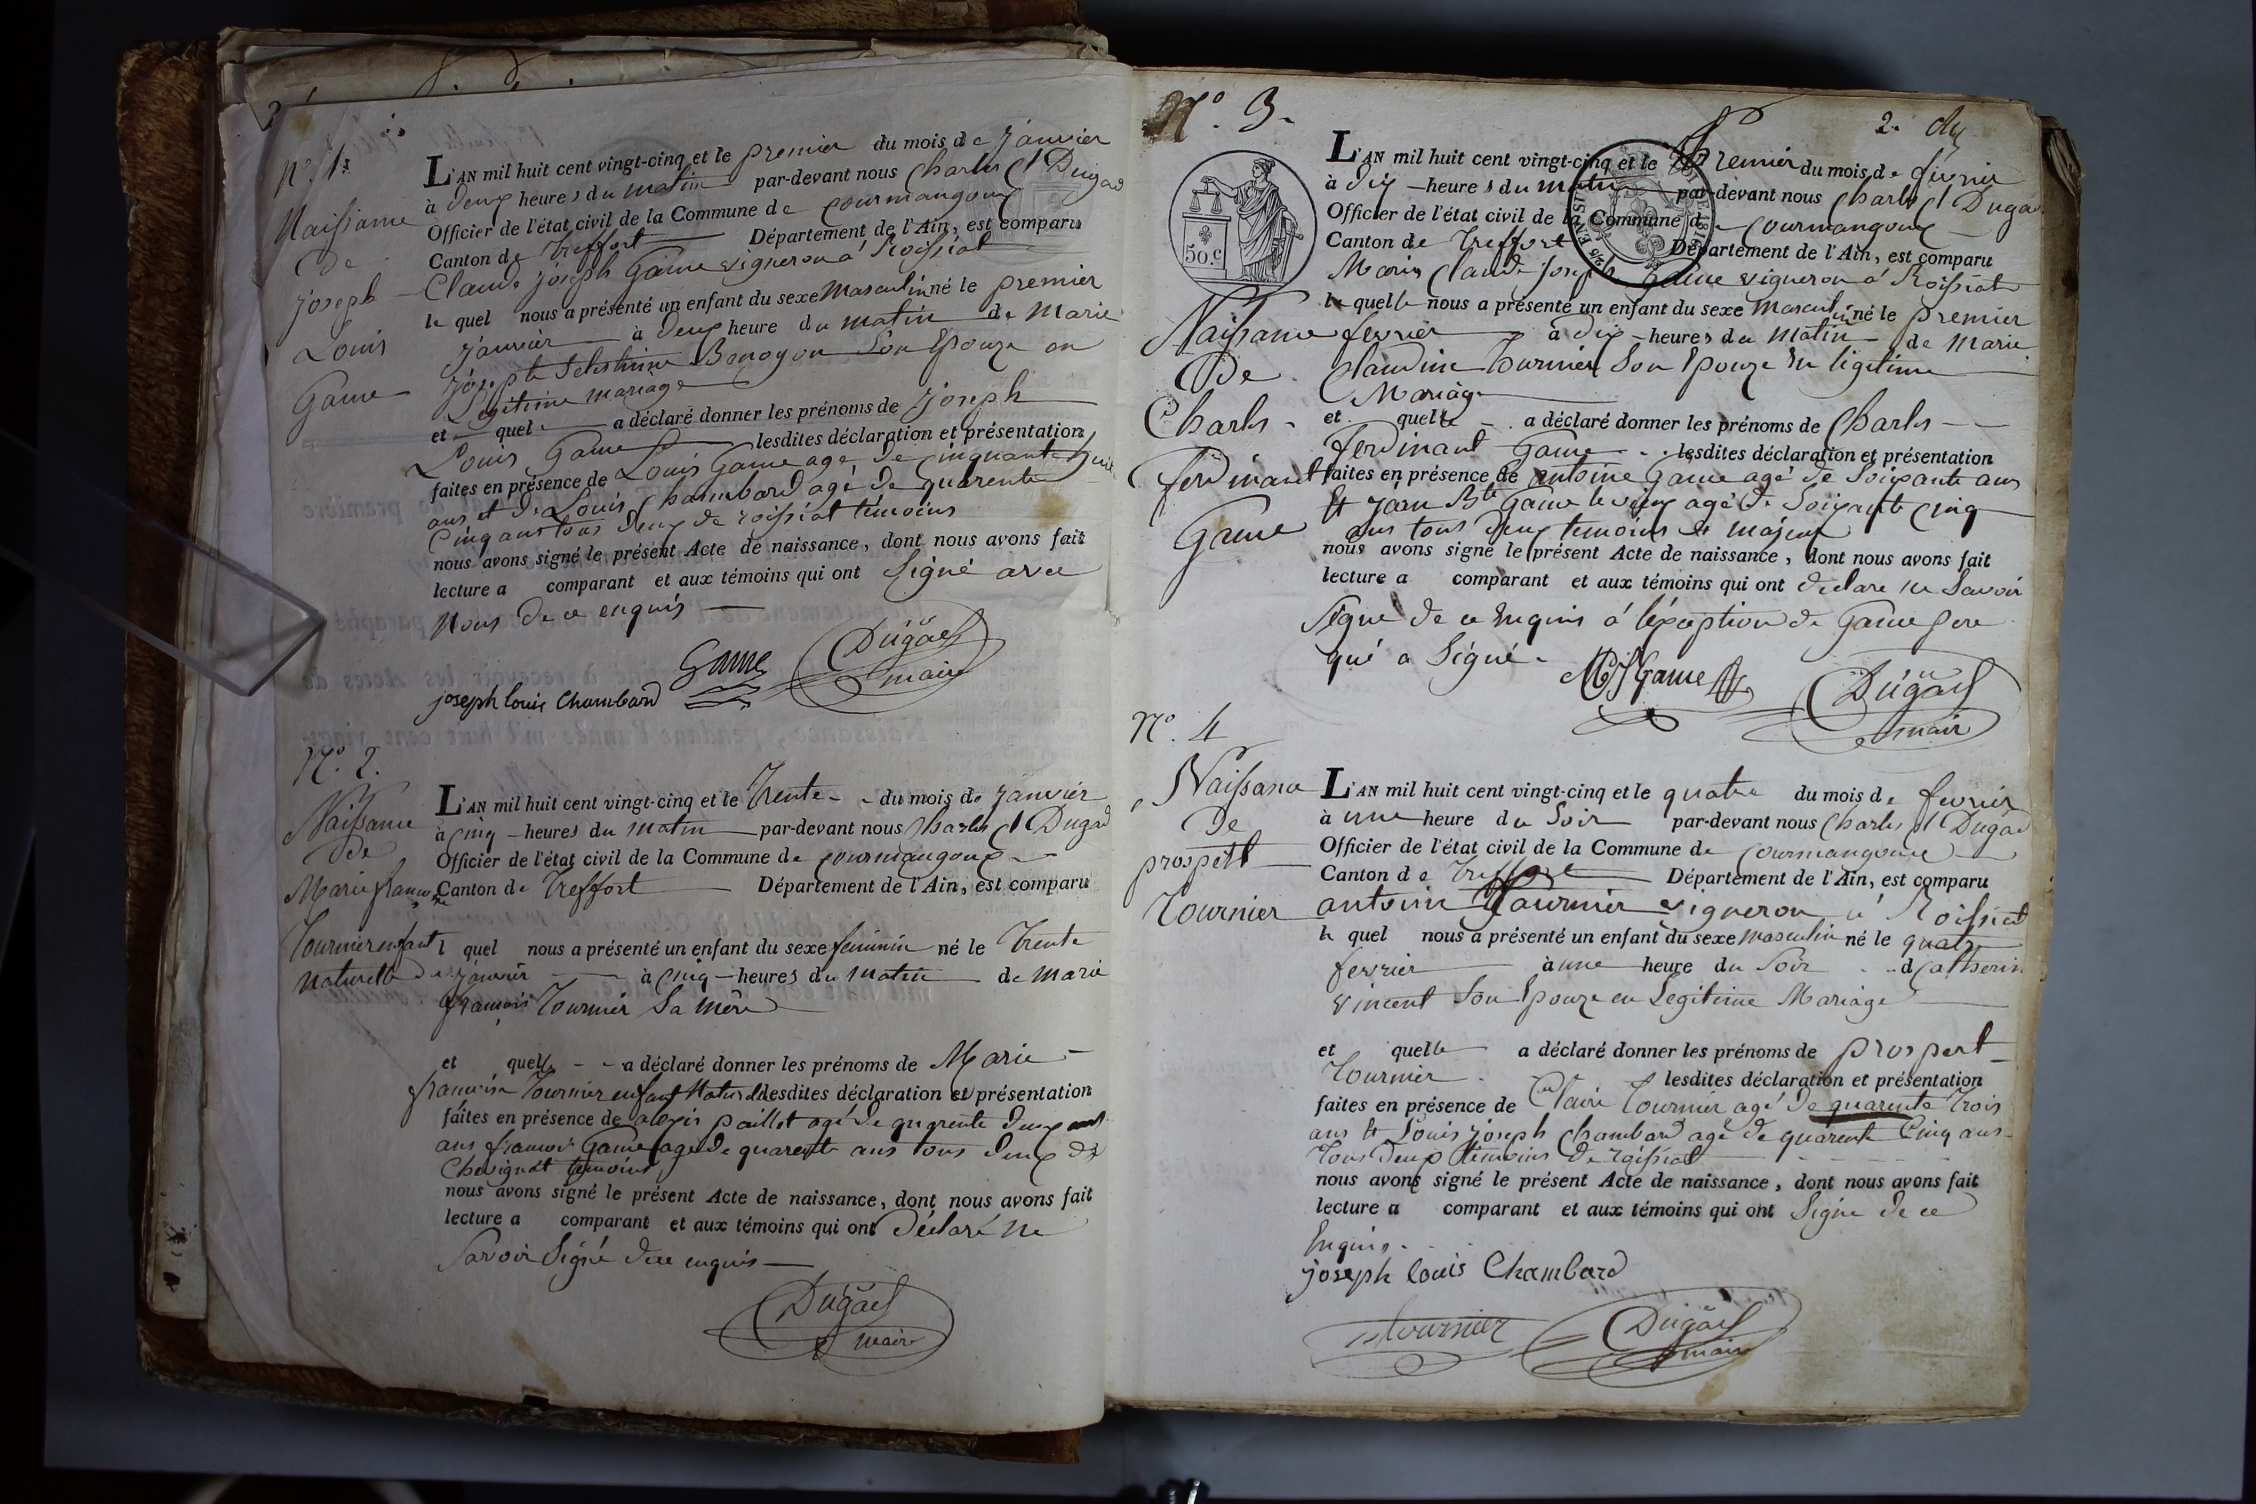 N.º 1.
Naissance
de
joseph
Louis
Game
L'AN mil huit cent vingt-cinq et le premier du mois de janvier
à deux heures du matin par-devant nous Charles Dugad
Officier de l'état civil de la Commune de courmangoux
Canton de Treffort Département de l'Ain, est comparu
Claude joseph Game vigneron à Roissiat
le quel nous a présenté un enfant du sexe masculin né le premier
janvier à deux heure du matin de Marie
son Epouze en
Légitime mariage
et quel a déclaré donner les prénoms de joseph
Louis Game lesdites déclaration et présentation
faites en présence de Louis Game agé de cinquante
ans et de Louis Chambard agé de quarente
Cinq ans tous deux de roissiat témoins
nous avons signé le présent Acte de naissance, dont nous avons fait
lecture a comparant et aux témoins qui ont Signé avec
Nous de ce enquis
Game Dugad
joseph louis Chambard maire
N.º 2.
Naissance
de
Marie francoise
Tournier enfant
naturelle
L'AN mil huit cent vingt-cinq et le Trente du mois de janvier
à cinq heures du matin par-devant nous Charles Dugad
Officier de l'état civil de la Commune de courmangoux
Canton de Treffort Département de l'Ain, est comparu
l quel nous a présenté un enfant du sexe feminin né le Trente
de janvier à cinq heures du matin de marie
francois Tournier Sa mère
et quelle a déclaré donner les prénoms de Marie
francoise Tournier enfant Naturelle lesdites déclaration et présentation
faites en présence de alexis paillet agé de quarente deux ans
ans francois Game agé de quarente ans tous deux de
Chevignat temoins
nous avons signé le présent Acte de naissance, dont nous avons fait
lecture a comparant et aux témoins qui ont Déclaré ne
Savoir Signé de ce enquis
Dugad
maire
2.
N.º 3.
50.C
Naissance
De
Charles
ferdinant
Game
L'AN mil huit cent vingt-cinq et le Premier du mois de février
à dix heures du matin par-devant nous Charles Dugad
Officier de l'état civil de la Commune de Courmangoux
Canton de Treffort Département de l'Ain, est comparu
Marie Claude joseph Game vigneron à Roissiat
le quelle nous a présenté un enfant du sexe masculin né le premier
fevrier à dix heures du matin de Marie
Claudine Tournier Son Epouze En légitime
Mariage
et quelle a déclaré donner les prénoms de Charles
ferdinant Game lesdites déclaration et présentation
faites en présence de antoine Game agé de Soixante ans
Et jean Bte Game le vieux agé de Soixante cinq
ans tous deux temoins et majeur
nous avons signé le présent Acte de naissance, dont nous avons fait
lecture a comparant et aux témoins qui ont déclare ne Savoir
Signe de ce enquis à l'éxception de Game pere
qui a Signé
M J Game Dugad
maire
N.º 4
Naissance
De
prospert
Tournier
L'AN mil huit cent vingt-cinq et le quatre du mois de fevrier
à une heure du Soir par-devant nous Charles Dugad
Officier de l'état civil de la Commune de Courmangoux
Canton de Treffort Département de l'Ain, est comparu
antoine Tournier vigneron à Roissiat
le quel nous a présenté un enfant du sexe masculin né le quatre
fevrier à une heure du Soir d Catherin
vincent Son Epouze en Legitime Mariage
et quelle a déclaré donner les prénoms de prospert
Tournier lesdites déclaration et présentation
faites en présence de Claire Tournier agé de quarente Trois
ans Et Louis joseph Chambard agé de quarente Cinq ans
Tous deux témoins de roissiat
nous avons signé le présent Acte de naissance, dont nous avons fait
lecture a comparant et aux témoins qui ont Signe de ce
Enquis
joseph louis Chambard
Tournier Dugad
maire